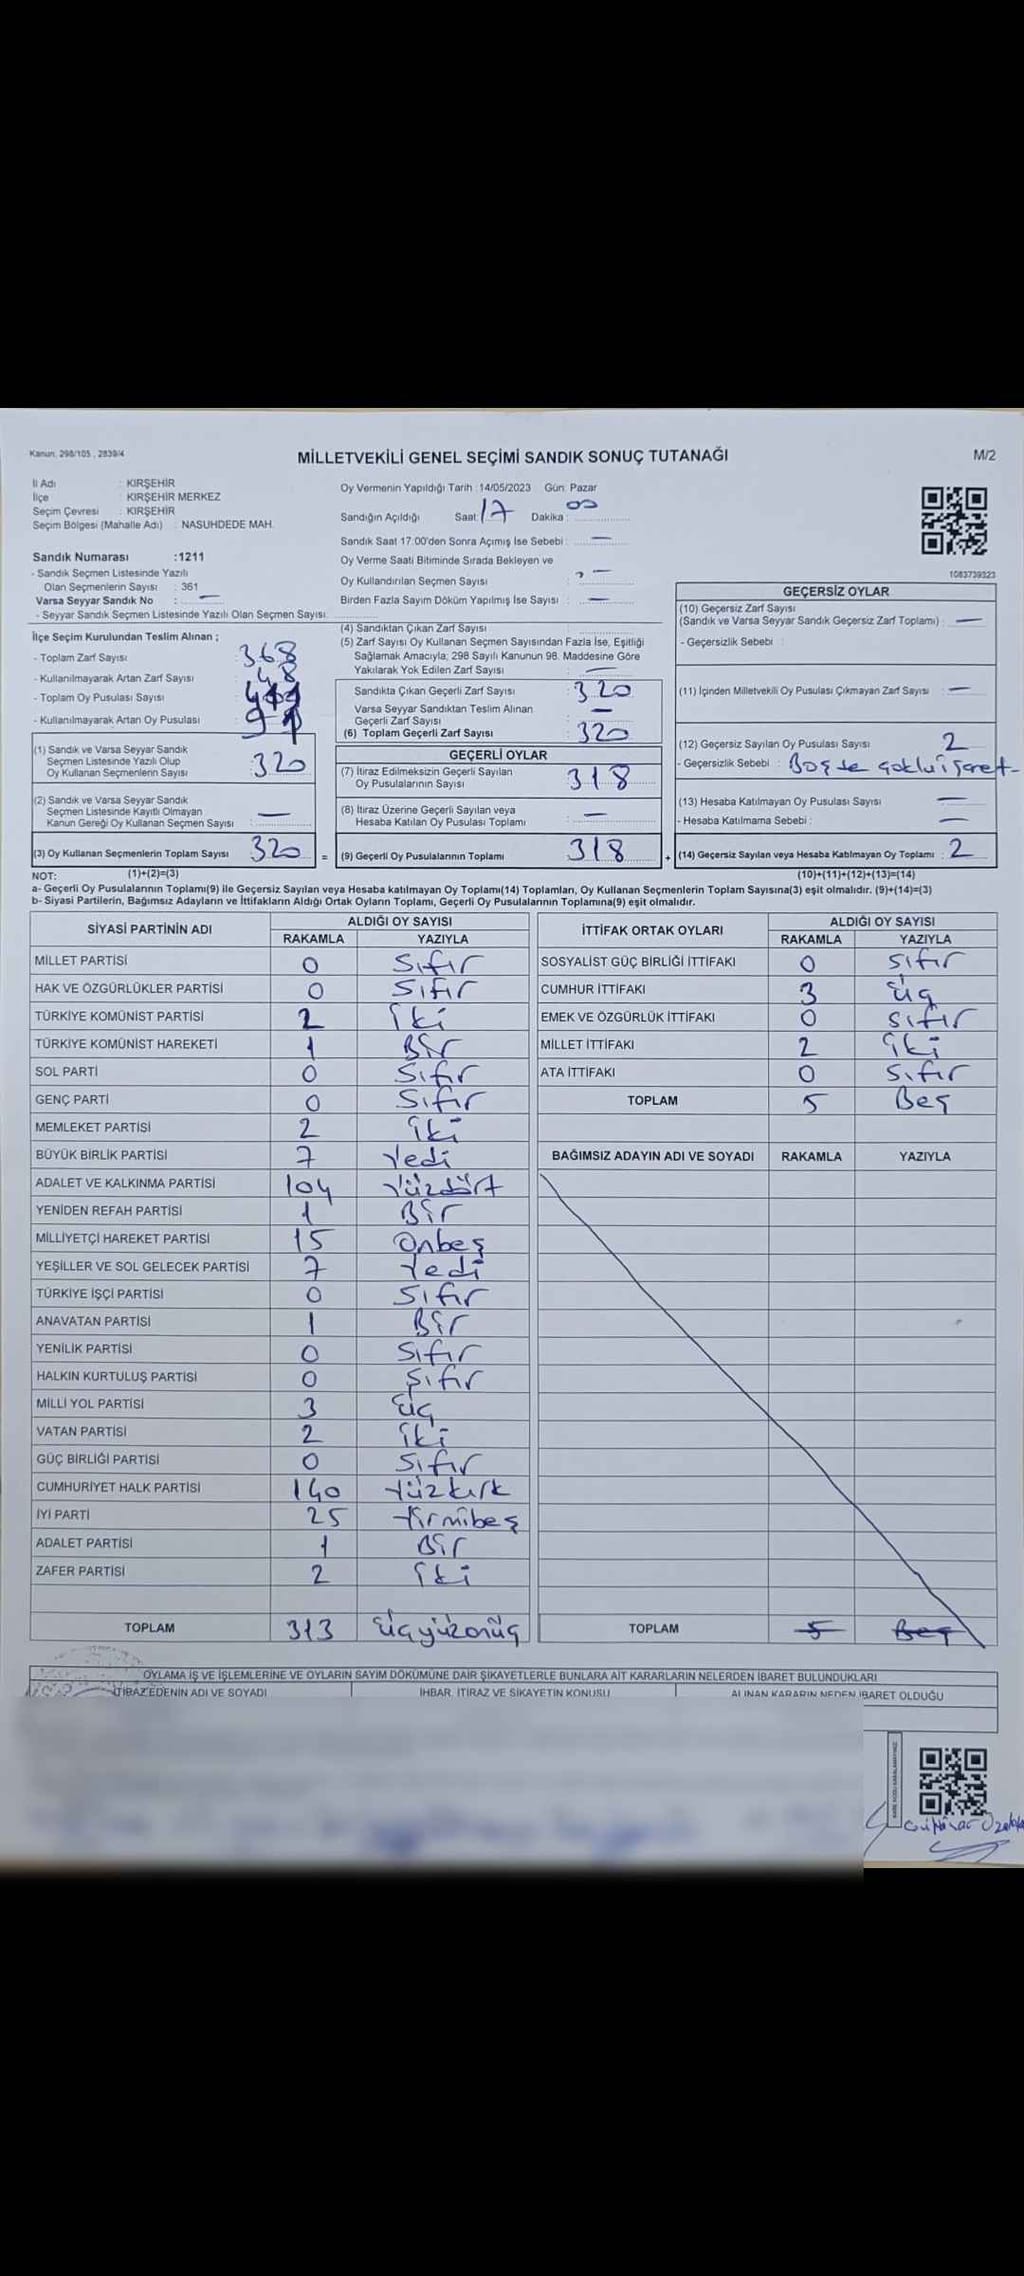 Kanun, 298/105 , 2839/4
MİLLETVEKİLİ GENEL SEÇİMİ SANDIK SONUÇ TUTANAĞI
M/2
İl Adı : KIRŞEHİR
İlçe : KIRŞEHİR MERKEZ
Seçim Çevresi : KIRŞEHİR
Seçim Bölgesi (Mahalle Adı) : NASUHDEDE MAH.
Oy Vermenin Yapıldığı Tarih :14/05/2023 Gün: Pazar
Sandığın Açıldığı Saat: 17 Dakika : 00
Sandık Saat 17:00'den Sonra Açımış İse Sebebi : —
Oy Verme Saati Bitiminde Sırada Bekleyen ve
Oy Kullandırılan Seçmen Sayısı : —
Birden Fazla Sayım Döküm Yapılmış İse Sayısı : —
1083739323
Sandık Numarası :1211
- Sandık Seçmen Listesinde Yazılı
Olan Seçmenlerin Sayısı : 361
Varsa Seyyar Sandık No : —
- Seyyar Sandık Seçmen Listesinde Yazılı Olan Seçmen Sayısı:
İlçe Seçim Kurulundan Teslim Alınan ;
- Toplam Zarf Sayısı : 368
- Kullanılmayarak Artan Zarf Sayısı : 48
- Toplam Oy Pusulası Sayısı :
- Kullanılmayarak Artan Oy Pusulası :
(1) Sandık ve Varsa Seyyar Sandık
Seçmen Listesinde Yazılı Olup
Oy Kullanan Seçmenlerin Sayısı : 320
(2) Sandık ve Varsa Seyyar Sandık
Seçmen Listesinde Kayıtlı Olmayan
Kanun Gereği Oy Kullanan Seçmen Sayısı : —
(3) Oy Kullanan Seçmenlerin Toplam Sayısı : 320 =
(4) Sandıktan Çıkan Zarf Sayısı :
(5) Zarf Sayısı Oy Kullanan Seçmen Sayısından Fazla İse, Eşitliği
Sağlamak Amacıyla; 298 Sayılı Kanunun 98. Maddesine Göre
Yakılarak Yok Edilen Zarf Sayısı : —
Sandıkta Çıkan Geçerli Zarf Sayısı : 320
Varsa Seyyar Sandıktan Teslim Alınan
Geçerli Zarf Sayısı : —
(6) Toplam Geçerli Zarf Sayısı : 320
GEÇERLİ OYLAR
(7) İtiraz Edilmeksizin Geçerli Sayılan
Oy Pusulalarının Sayısı : 318
(8) İtiraz Üzerine Geçerli Sayılan veya
Hesaba Katılan Oy Pusulası Toplamı : —
(9) Geçerli Oy Pusulalarının Toplamı 318 +
GEÇERSİZ OYLAR
(10) Geçersiz Zarf Sayısı
(Sandık ve Varsa Seyyar Sandık Geçersiz Zarf Toplamı) : —
- Geçersizlik Sebebi :
(11) İçinden Milletvekili Oy Pusulası Çıkmayan Zarf Sayısı : —
(12) Geçersiz Sayılan Oy Pusulası Sayısı : 2
- Geçersizlik Sebebi : Boş ve çoklu işaret
(13) Hesaba Katılmayan Oy Pusulası Sayısı : —
- Hesaba Katılmama Sebebi : —
(14) Geçersiz Sayılan veya Hesaba Katılmayan Oy Toplamı : 2
NOT: (1)+(2)=(3) (10)+(11)+(12)+(13)=(14)
a- Geçerli Oy Pusulalarının Toplamı(9) ile Geçersiz Sayılan veya Hesaba katılmayan Oy Toplamı(14) Toplamları, Oy Kullanan Seçmenlerin Toplam Sayısına(3) eşit olmalıdır. (9)+(14)=(3)
b- Siyasi Partilerin, Bağımsız Adayların ve İttifakların Aldığı Ortak Oyların Toplamı, Geçerli Oy Pusulalarının Toplamına(9) eşit olmalıdır.
SİYASİ PARTİNİN ADI ALDIĞI OY SAYISI
RAKAMLA YAZIYLA
MİLLET PARTİSİ 0 Sıfır
HAK VE ÖZGÜRLÜKLER PARTİSİ 0 Sıfır
TÜRKİYE KOMÜNİST PARTİSİ 2 İki
TÜRKİYE KOMÜNİST HAREKETİ 1 Bir
SOL PARTİ 0 Sıfır
GENÇ PARTİ 0 Sıfır
MEMLEKET PARTİSİ 2 İki
BÜYÜK BİRLİK PARTİSİ 7 Yedi
ADALET VE KALKINMA PARTİSİ 104 Yüzdört
YENİDEN REFAH PARTİSİ 1 Bir
MİLLİYETÇİ HAREKET PARTİSİ 15 Onbeş
YEŞİLLER VE SOL GELECEK PARTİSİ 7 Yedi
TÜRKİYE İŞÇİ PARTİSİ 0 Sıfır
ANAVATAN PARTİSİ 1 Bir
YENİLİK PARTİSİ 0 Sıfır
HALKIN KURTULUŞ PARTİSİ 0 Sıfır
MİLLİ YOL PARTİSİ 3 Üç
VATAN PARTİSİ 2 İki
GÜÇ BİRLİĞİ PARTİSİ 0 Sıfır
CUMHURİYET HALK PARTİSİ 140 Yüzkırk
İYİ PARTİ 25 Yirmibeş
ADALET PARTİSİ 1 Bir
ZAFER PARTİSİ 2 İki
TOPLAM 313 Üçyüzonüç
İTTİFAK ORTAK OYLARI ALDIĞI OY SAYISI
RAKAMLA YAZIYLA
SOSYALİST GÜÇ BİRLİĞİ İTTİFAKI 0 Sıfır
CUMHUR İTTİFAKI 3 Üç
EMEK VE ÖZGÜRLÜK İTTİFAKI 0 Sıfır
MİLLET İTTİFAKI 2 İki
ATA İTTİFAKI 0 Sıfır
TOPLAM 5 Beş
BAĞIMSIZ ADAYIN ADI VE SOYADI RAKAMLA YAZIYLA
TOPLAM 5 Beş
OYLAMA İŞ VE İŞLEMLERİNE VE OYLARIN SAYIM DÖKÜMÜNE DAİR ŞİKAYETLERLE BUNLARA AİT KARARLARIN NELERDEN İBARET BULUNDUKLARI
İTİRAZ EDENİN ADI VE SOYADI İHBAR, İTİRAZ VE ŞİKAYETİN KONUSU ALINAN KARARIN NEDEN İBARET OLDUĞU